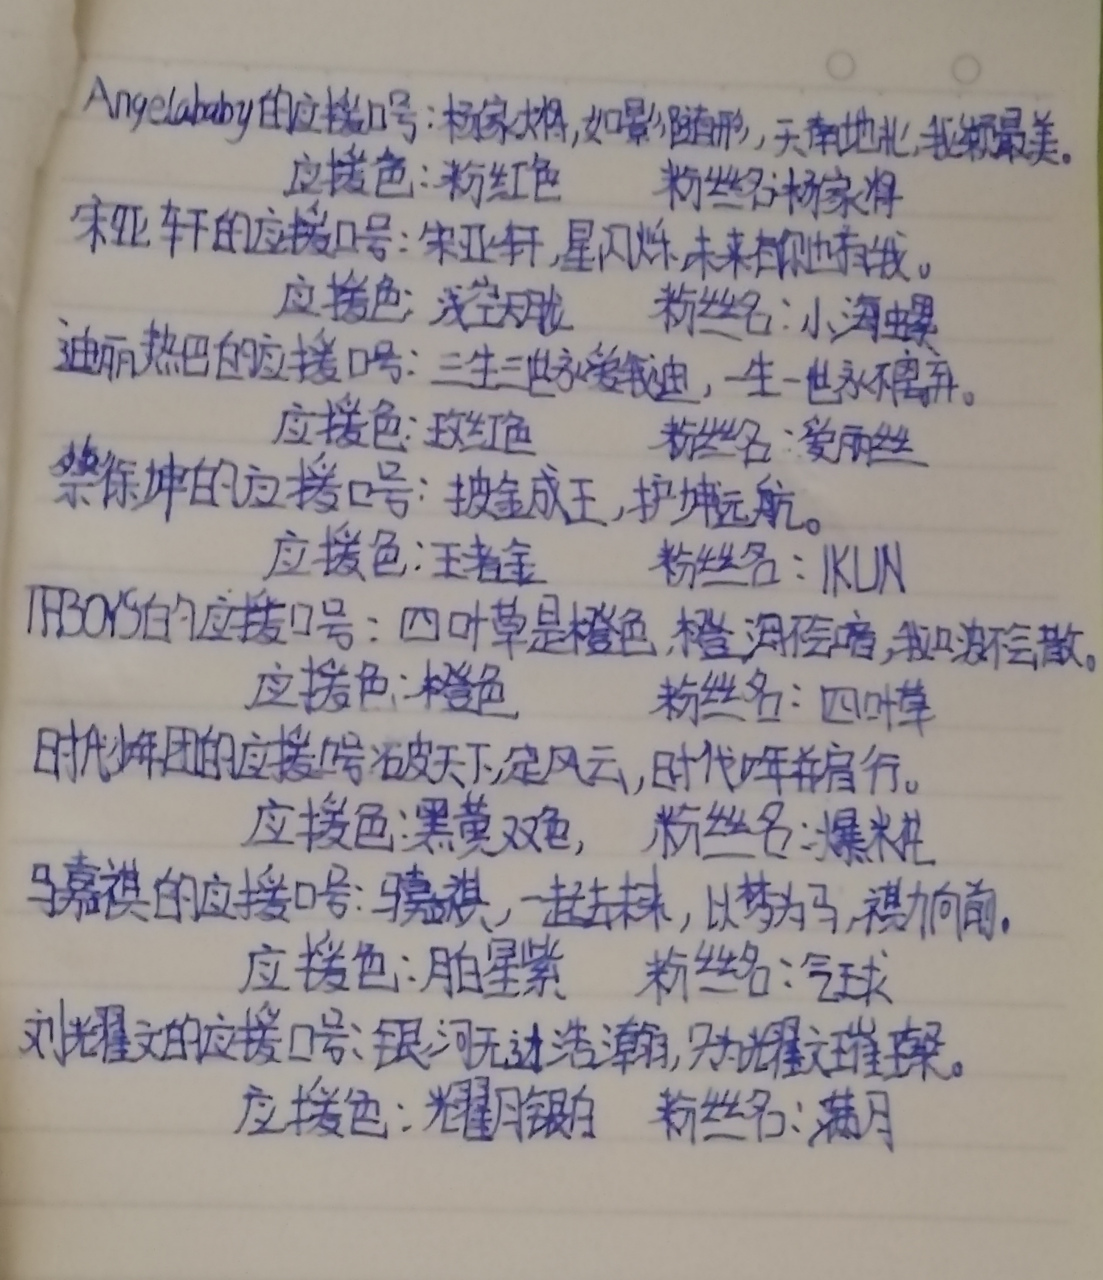 Angelababy的应援口号：杨家大将，如影随形，天南地北，我颖最美。
应援色：粉红色 粉丝名：杨家将
宋亚轩的应援口号：宋亚轩，星闪烁，未来有你也有我。
应援色：浅空天胧 粉丝名：小海螺
迪丽热巴的应援口号：三生三世永爱我迪，一生一世永不离弃。
应援色：玫红色 粉丝名：爱丽丝
蔡徐坤的应援口号：披金成王，护坤远航。
应援色：王者金 粉丝名：IKUN
TFBOYS的应援口号：四叶草是橙色，橙海不会暗，我们不会散。
应援色：橙色 粉丝名：四叶草
时代少年团的应援口号：破天下，定风云，时代少年并肩行。
应援色：黑黄双色， 粉丝名：爆米花
马嘉祺的应援口号：马嘉祺，一起去未来，以梦为马，祺力向前。
应援色：月白星紫 粉丝名：气球
刘耀文的应援口号：银河无边浩瀚，只为耀文璀璨。
应援色：耀月银白 粉丝名：满月